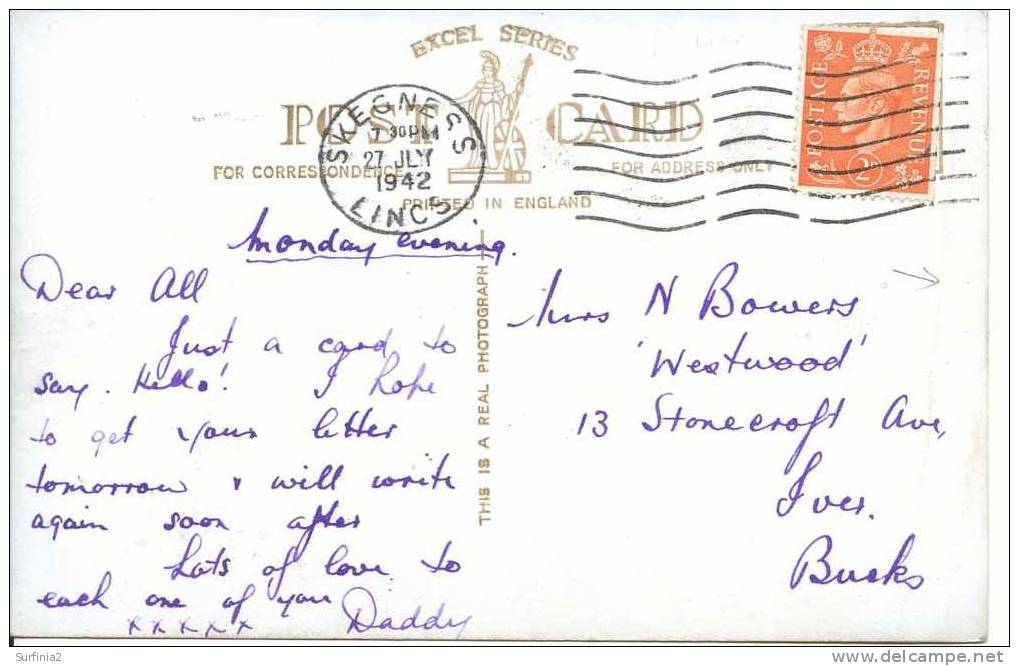 EXCEL SERIES
POST CARD
FOR CORRESPONDENCE
FOR ADDRESS ONLY
PRINTED IN ENGLAND
SKEGNESS
7 30 PM
27 JLY
1942
LINCS
POSTAGE
REVENUE
2D
Monday evening.
Dear All
Just a card to
say. Hello! I hope
to get your letter
tomorrow & will write
again soon after
Lots of love to
each one of you
xxxxx Daddy
THIS IS A REAL PHOTOGRAPH
Mrs N Bowers
'Westwood'
13 Stonecroft Ave,
Iver.
Bucks
Surfinia2